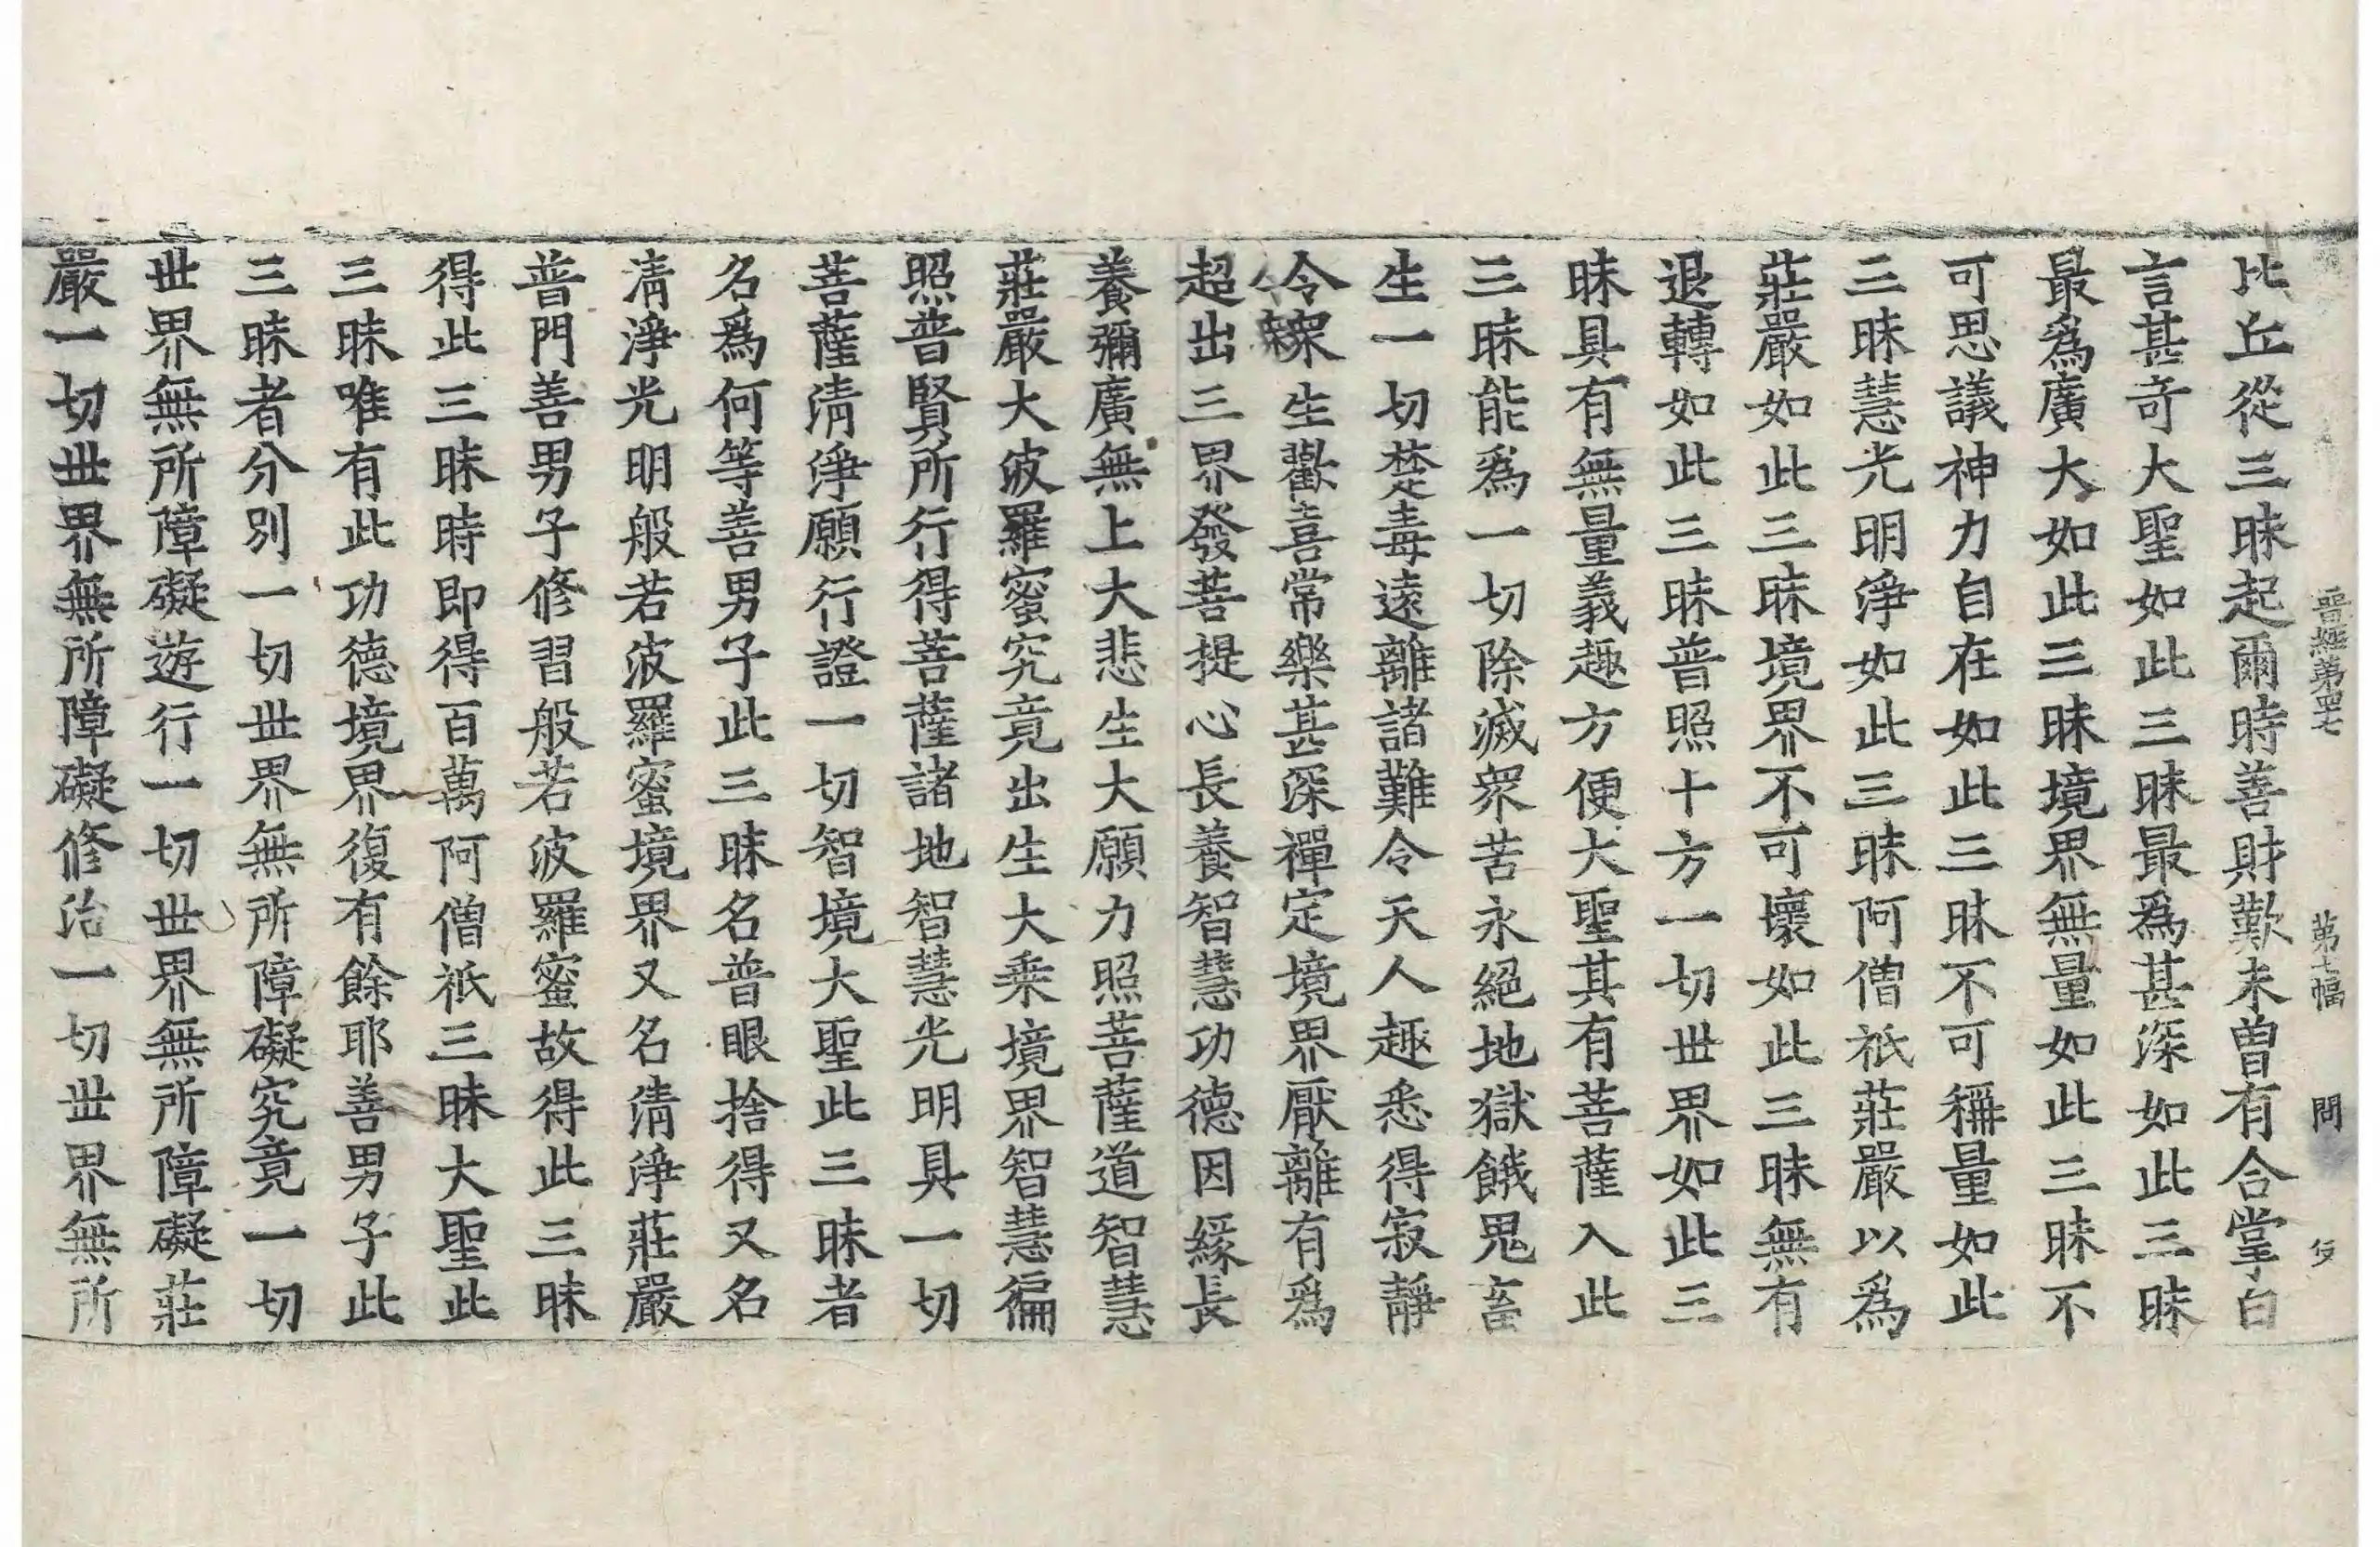 晉經第四七　第七幅　問
比丘從三昧起爾時善財歎未曾有合掌白
言甚奇大聖如此三昧最爲甚深如此三昧
最爲廣大如此三昧境界無量如此三昧不
可思議神力自在如此三昧不可稱量如此
三昧慧光明淨如此三昧阿僧祇莊嚴以爲
莊嚴如此三昧境界不可壞如此三昧無有
退轉如此三昧普照十方一切世界如此三
昧具有無量義趣方便大聖其有菩薩入此
三昧能爲一切除滅衆苦永絕地獄餓鬼畜
生一切楚毒遠離諸難令天人趣悉得寂靜
令衆生歡喜常樂甚深禪定境界厭離有爲
超出三界發菩提心長養智慧功德因緣長
養彌廣無上大悲生大願力照菩薩道智慧
莊嚴大波羅蜜究竟出生大乘境界智慧徧
照普賢所行得菩薩諸地智慧光明具一切
菩薩清淨願行證一切智境大聖此三昧者
名爲何等善男子此三昧名普眼捨得又名
清淨光明般若波羅蜜境界又名清淨莊嚴
普門善男子修習般若波羅蜜故得此三昧
得此三昧時即得百萬阿僧祇三昧大聖此
三昧唯有此功德境界復有餘耶善男子此
三昧者分別一切世界無所障礙究竟一切
世界無所障礙遊行一切世界無所障礙莊
嚴一切世界無所障礙修治一切世界無所